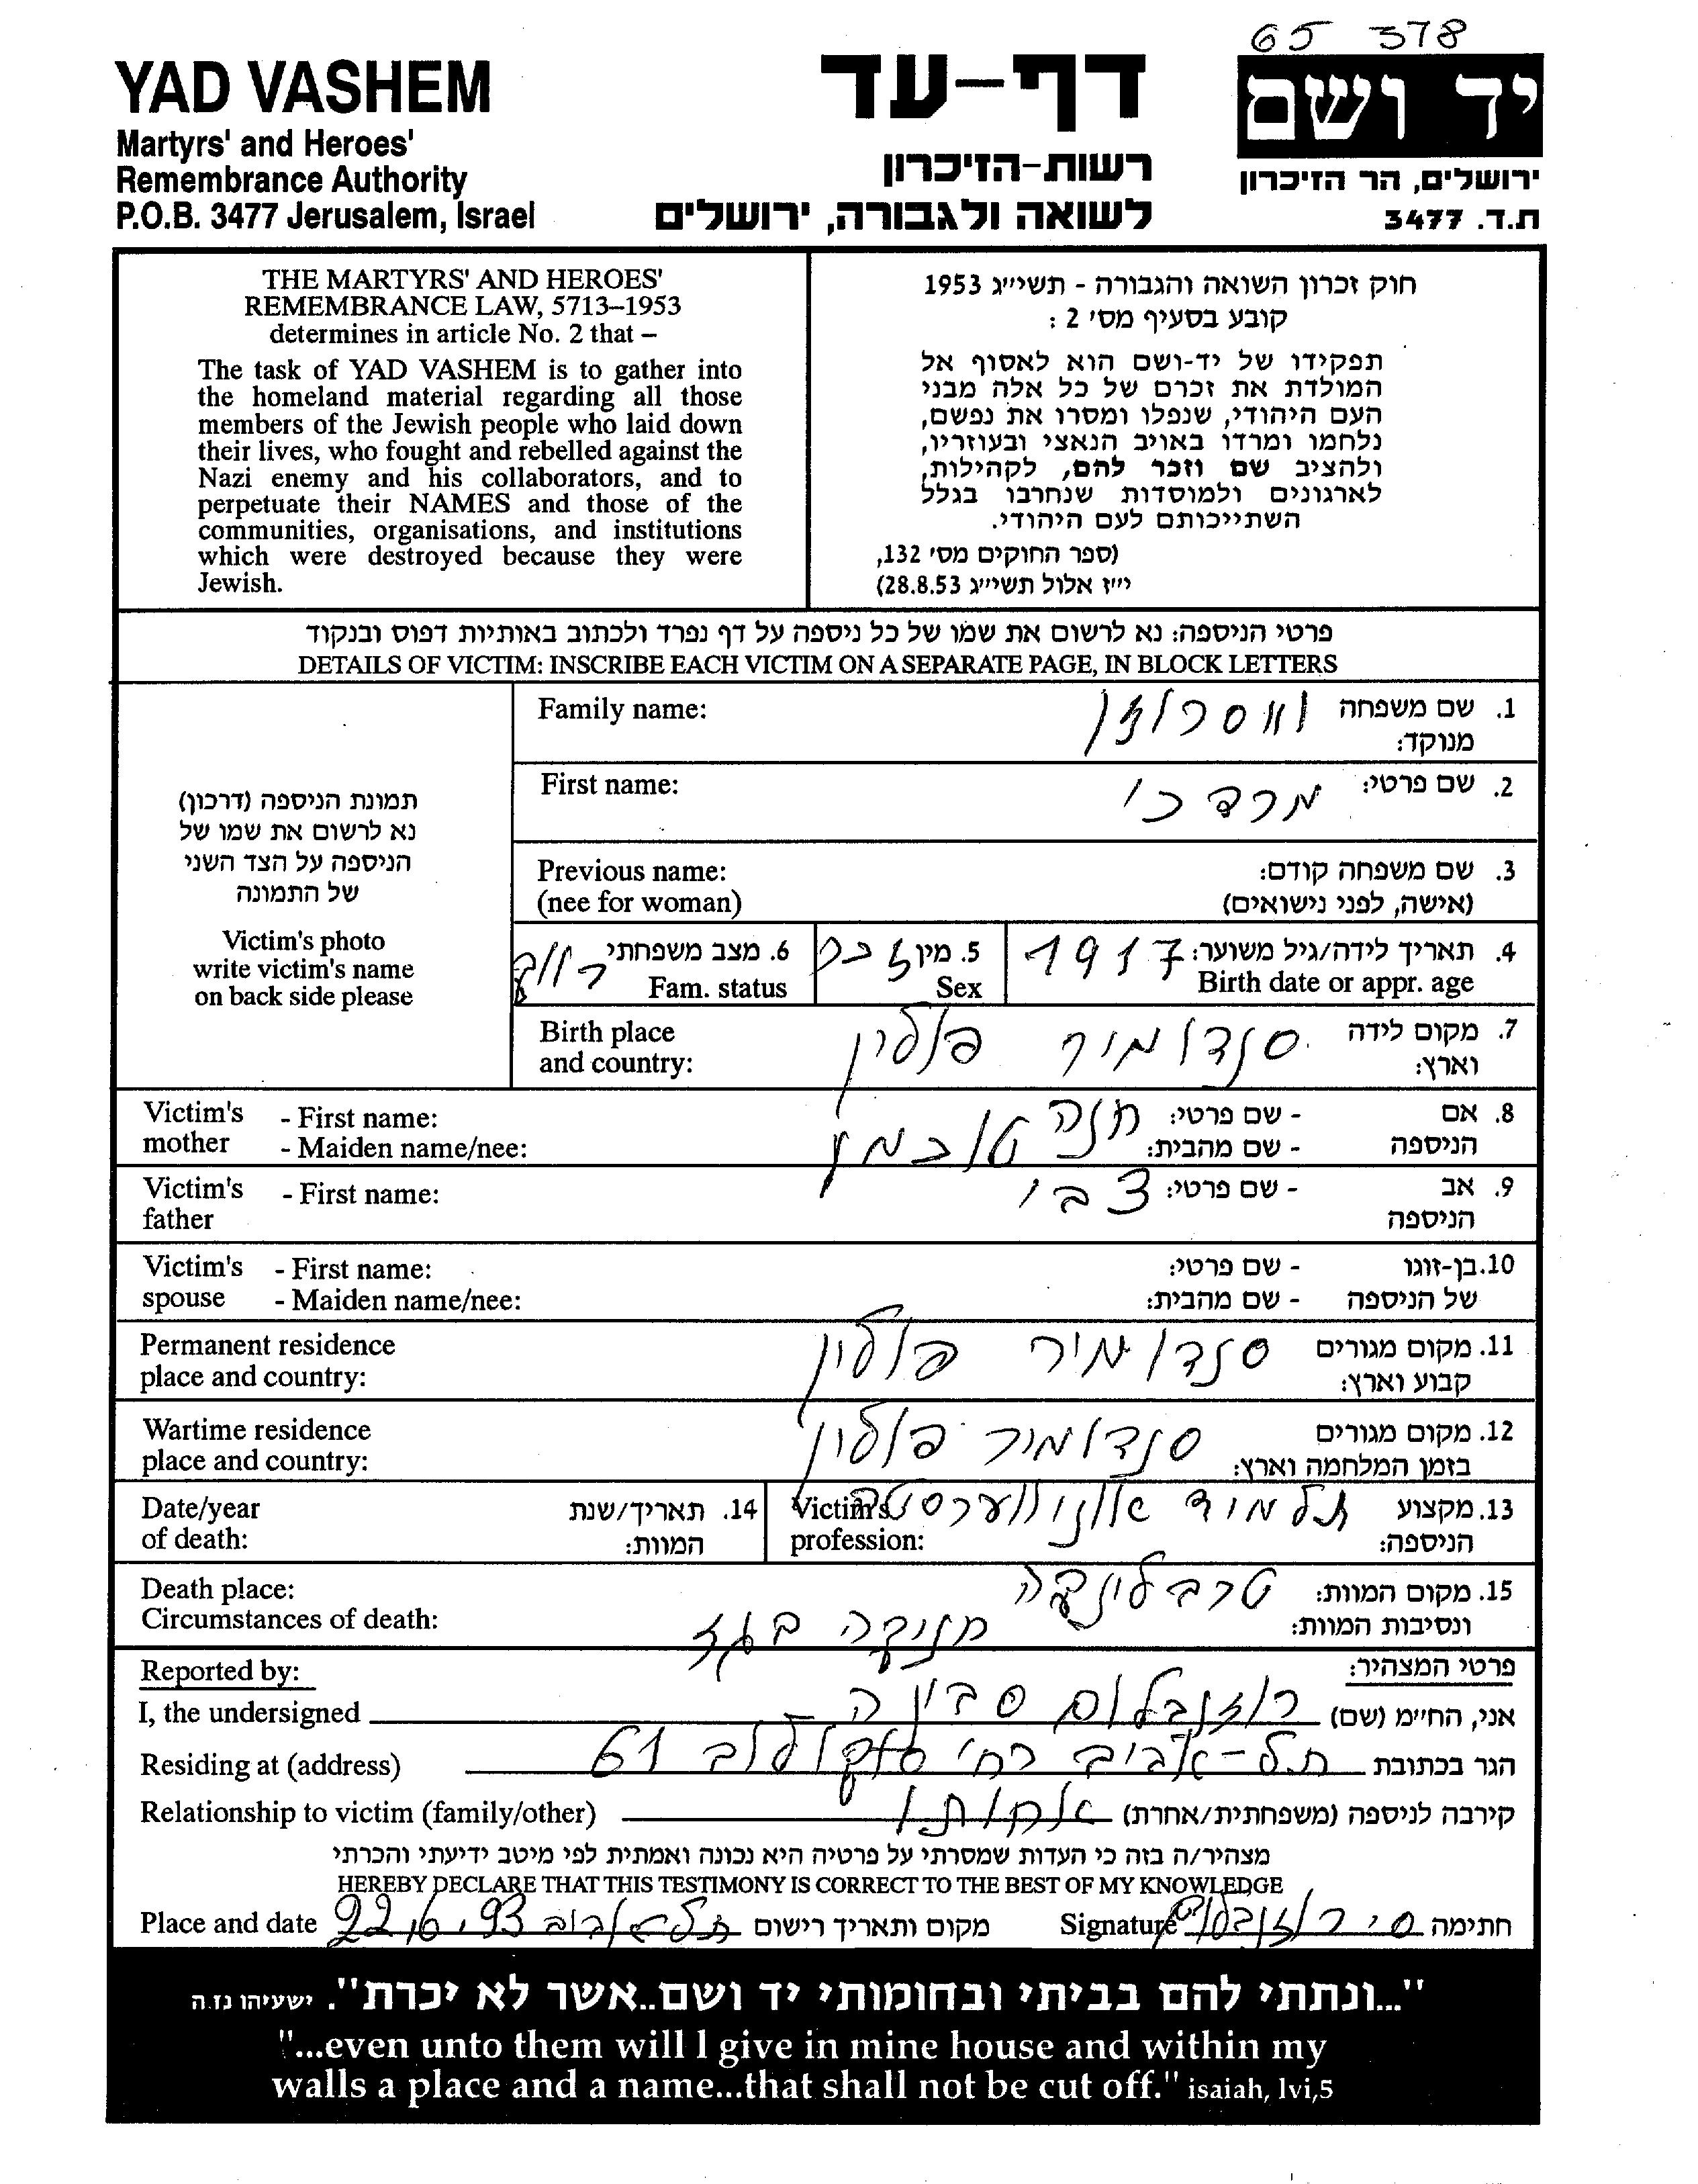 65 378
YAD VASHEM
Martyrs' and Heroes'
Remembrance Authority
P.O.B. 3477 Jerusalem, Israel
דף-עד
רשות-הזיכרון
לשואה ולגבורה, ירושלים
יד ושם
ירושלים, הר הזיכרון
ת.ד. 3477
THE MARTYRS' AND HEROES'
REMEMBRANCE LAW, 5713–1953
determines in article No. 2 that –
The task of YAD VASHEM is to gather into
the homeland material regarding all those
members of the Jewish people who laid down
their lives, who fought and rebelled against the
Nazi enemy and his collaborators, and to
perpetuate their NAMES and those of the
communities, organisations, and institutions
which were destroyed because they were
Jewish.
חוק זכרון השואה והגבורה - תשי״ג 1953
קובע בסעיף מס׳ 2 :
תפקידו של יד-ושם הוא לאסוף אל
המולדת את זכרם של כל אלה מבני
העם היהודי, שנפלו ומסרו את נפשם,
נלחמו ומרדו באויב הנאצי ובעוזריו,
ולהציב שם וזכר להם, לקהילות,
לארגונים ולמוסדות שנחרבו בגלל
השתייכותם לעם היהודי.
(ספר החוקים מס׳ 132,
י״ז אלול תשי״ג 28.8.53)
פרטי הניספה: נא לרשום את שמו של כל ניספה על דף נפרד ולכתוב באותיות דפוס ובנקוד
DETAILS OF VICTIM: INSCRIBE EACH VICTIM ON A SEPARATE PAGE, IN BLOCK LETTERS
תמונת הניספה (דרכון)
נא לרשום את שמו של
הניספה על הצד השני
של התמונה
Victim's photo
write victim's name
on back side please
Family name: ווסרוזן 1. שם משפחה
מנוקד:
First name: מרדכי 2. שם פרטי:
Previous name: 3. שם משפחה קודם:
(nee for woman) (אישה, לפני נישואים)
4. תאריך לידה/גיל משוער: 1917 5. מין זכר 6. מצב משפחתי רווק
Birth date or appr. age Sex Fam. status
Birth place סנדומיר פולין 7. מקום לידה
and country: וארץ:
Victim's - First name: חנה - שם פרטי: 8. אם
mother - Maiden name/nee: טובמן - שם מהבית: הניספה
Victim's - First name: צבי - שם פרטי: 9. אב
father הניספה
Victim's - First name: - שם פרטי: 10. בן-זוגו
spouse - Maiden name/nee: - שם מהבית: של הניספה
Permanent residence סנדומיר פולין 11. מקום מגורים
place and country: קבוע וארץ:
Wartime residence סנדומיר פולין 12. מקום מגורים
place and country: בזמן המלחמה וארץ:
Date/year 14. תאריך/שנת
of death: המוות:
Victim's תלמיד אוניווערסטה 13. מקצוע
profession: הניספה:
Death place: טרבלינקה 15. מקום המוות:
Circumstances of death: חניקה בגז ונסיבות המוות:
Reported by: פרטי המצהיר:
I, the undersigned רוזנבלום סבינה אני, החי״מ (שם)
Residing at (address) תל-אביב רח׳ סוקולוב 61 הגר בכתובת
Relationship to victim (family/other) אחותו קירבה לניספה (משפחתית/אחרת)
מצהיר/ה בזה כי העדות שמסרתי על פרטיה היא נכונה ואמתית לפי מיטב ידיעתי והכרתי
HEREBY DECLARE THAT THIS TESTIMONY IS CORRECT TO THE BEST OF MY KNOWLEDGE
Place and date 22.6.93 תל-אביב מקום ותאריך רישום Signature ס. רוזנבלום חתימה
"...ונתתי להם בביתי ובחומותי יד ושם..אשר לא יכרת". ישעיהו נז.ה
"...even unto them will I give in mine house and within my
walls a place and a name...that shall not be cut off." isaiah, lvi,5